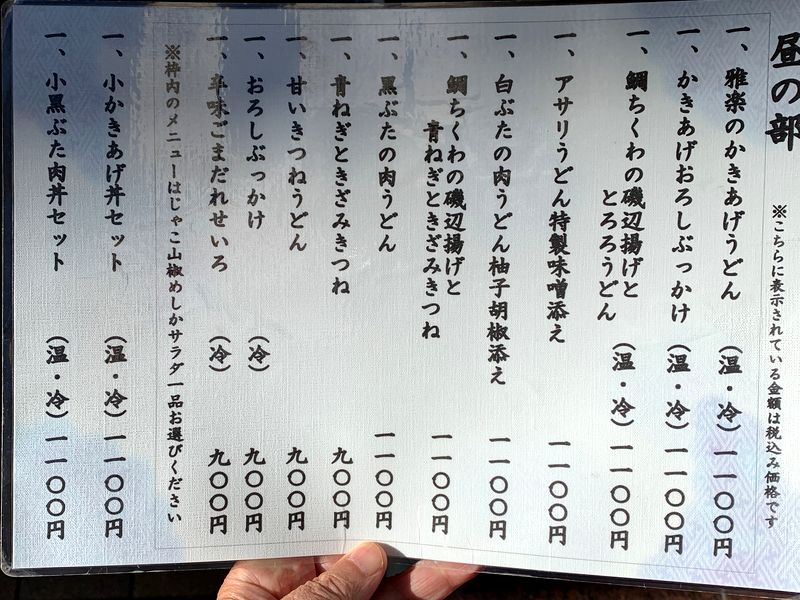 昼の部
※こちらに表示されている金額は税込み価格です
一、雅楽のかきあげうどん（温・冷）一一〇〇円
一、かきあげおろしぶっかけ（温・冷）一一〇〇円
一、鯛ちくわの磯辺揚げと
とろろうどん（温・冷）一一〇〇円
一、アサリうどん特製味噌添え 一一〇〇円
一、白ぶたの肉うどん柚子胡椒添え 一一〇〇円
一、鯛ちくわの磯辺揚げと
青ねぎときざみきつね 一一〇〇円
一、黒ぶたの肉うどん 一一〇〇円
一、青ねぎときざみきつね 九〇〇円
一、甘いきつねうどん 九〇〇円
一、おろしぶっかけ（冷）九〇〇円
一、辛味ごまだれせいろ（冷）九〇〇円
※枠内のメニューはじゃこ山椒めしかサラダ一品お選びください
一、小かきあげ丼セット（温・冷）一一〇〇円
一、小黒ぶた肉丼セット（温・冷）一一〇〇円